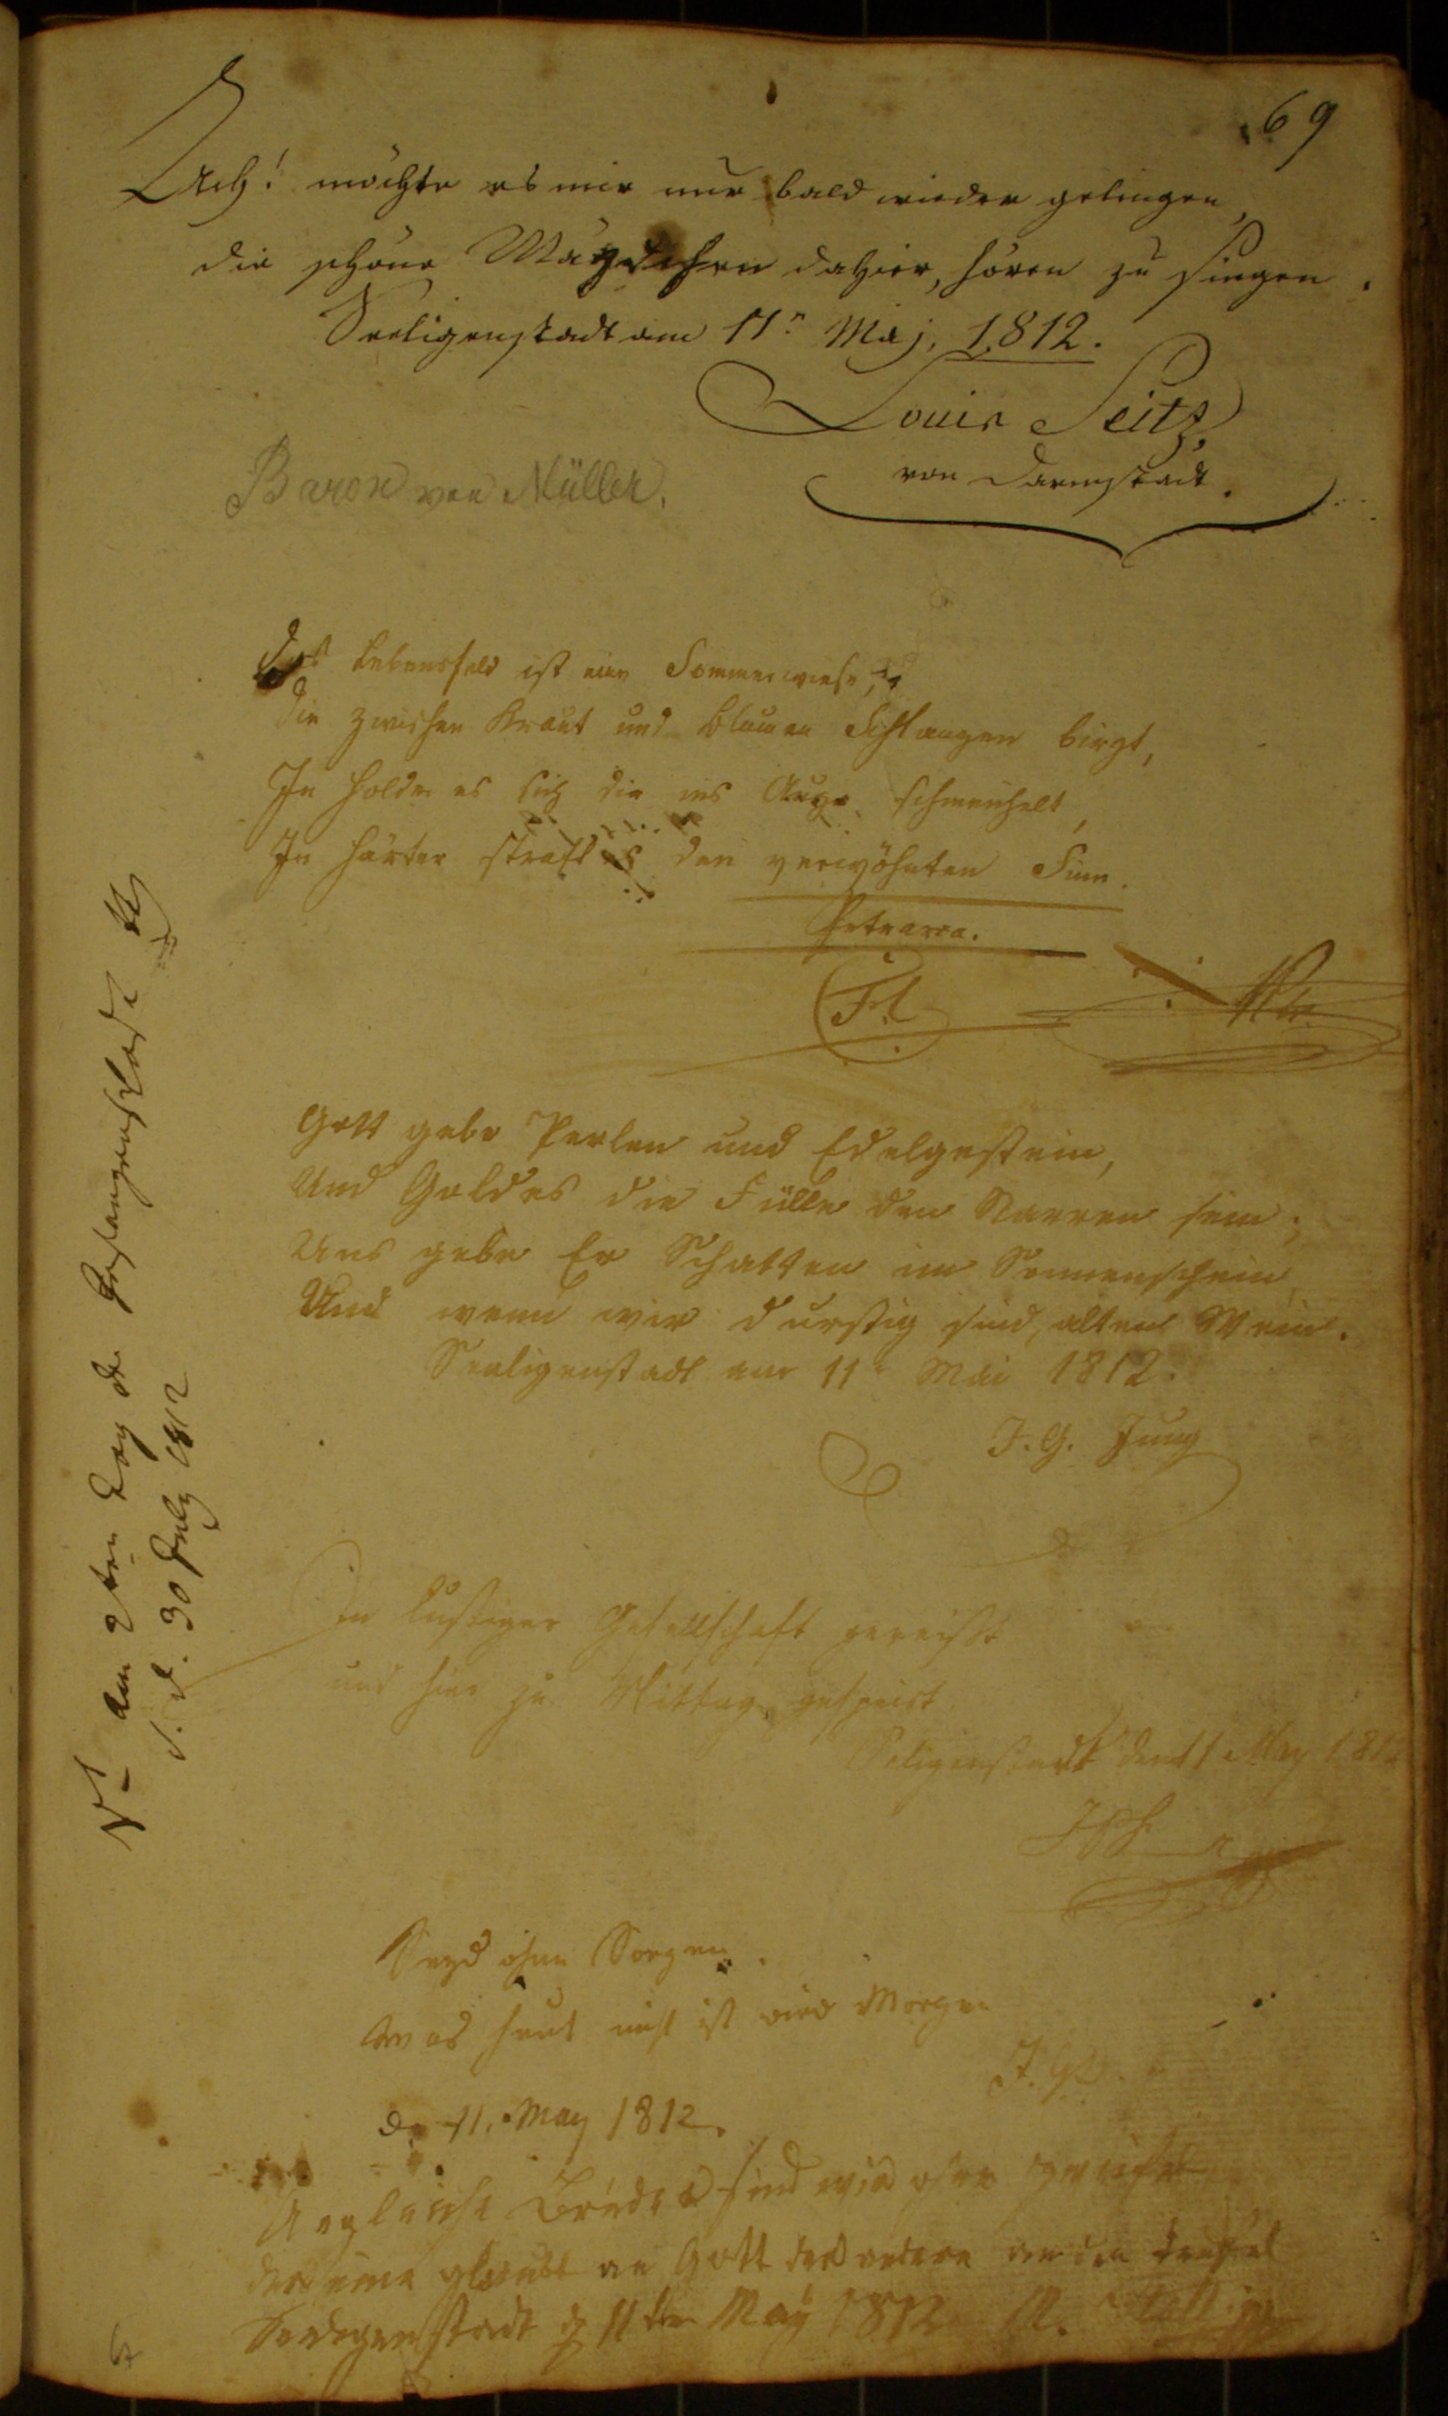 69
Ach! möchte es mir nur bald wieder gelingen,
die schöne Mägdchen dahier, hören zu singen.
Seeligenstadt am 11n Maj. 1812.
Louis Seitz,
von Darmstadt.
Baron von Müller.
Das Lebensfeld ist eine Sommerwiese,
Die zwischen Kraut und Blumen Schlangen birgt,
Je holder es sich dir ins Auge schmeichelt,
Je härter straft es den verwöhnten Sinn.
Petrarca.
Gott gebe Perlen und Edelgestein,
Und Goldes die Fülle den Narren sein;
Uns gebe Er Schatten im Sonnenschein,
Und wenn wir durstig sind, alten Wein.
Seeligenstadt am 11n Mai 1812.
J. G. Jung
In lustiger Gesellschaft gereißt
und hier zu Mittag gespeist.
Seligenstadt den 11 May 181
Seyd ohne Sorgen.
Was heut nicht ist wird Morgen
J. G.
d. 11. May 1812.
Ungleiche Brüder sind wir ohne Zweifel
der eine glaubt an Gott der andere an den Teufel
Seeligenstadt d 11ten May 1812 M.
am 2ten Tag der
d. 30 July 1812